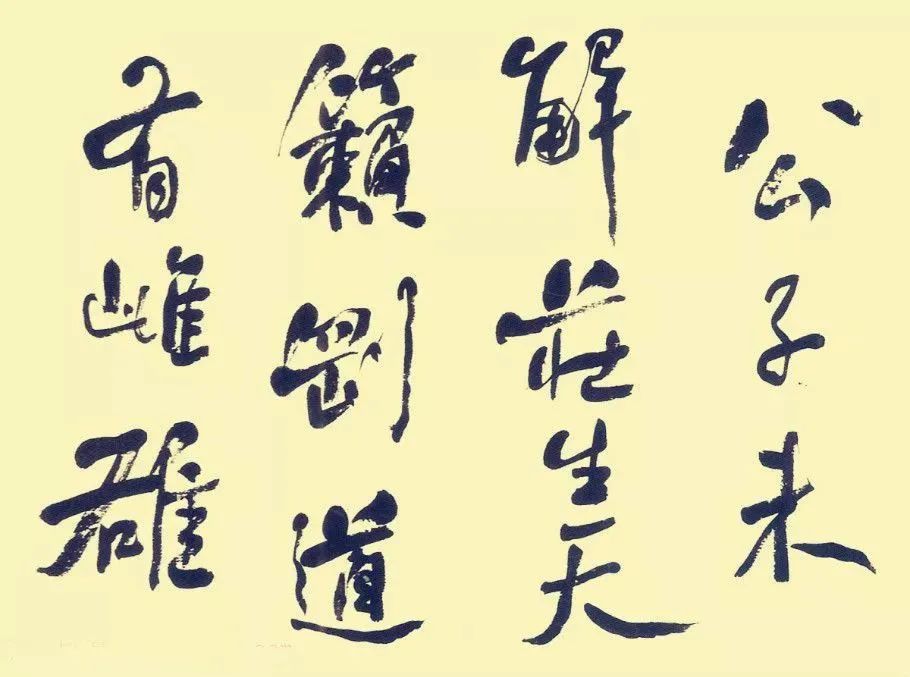 公子未
解莊生天
籟剛道
有雌雄